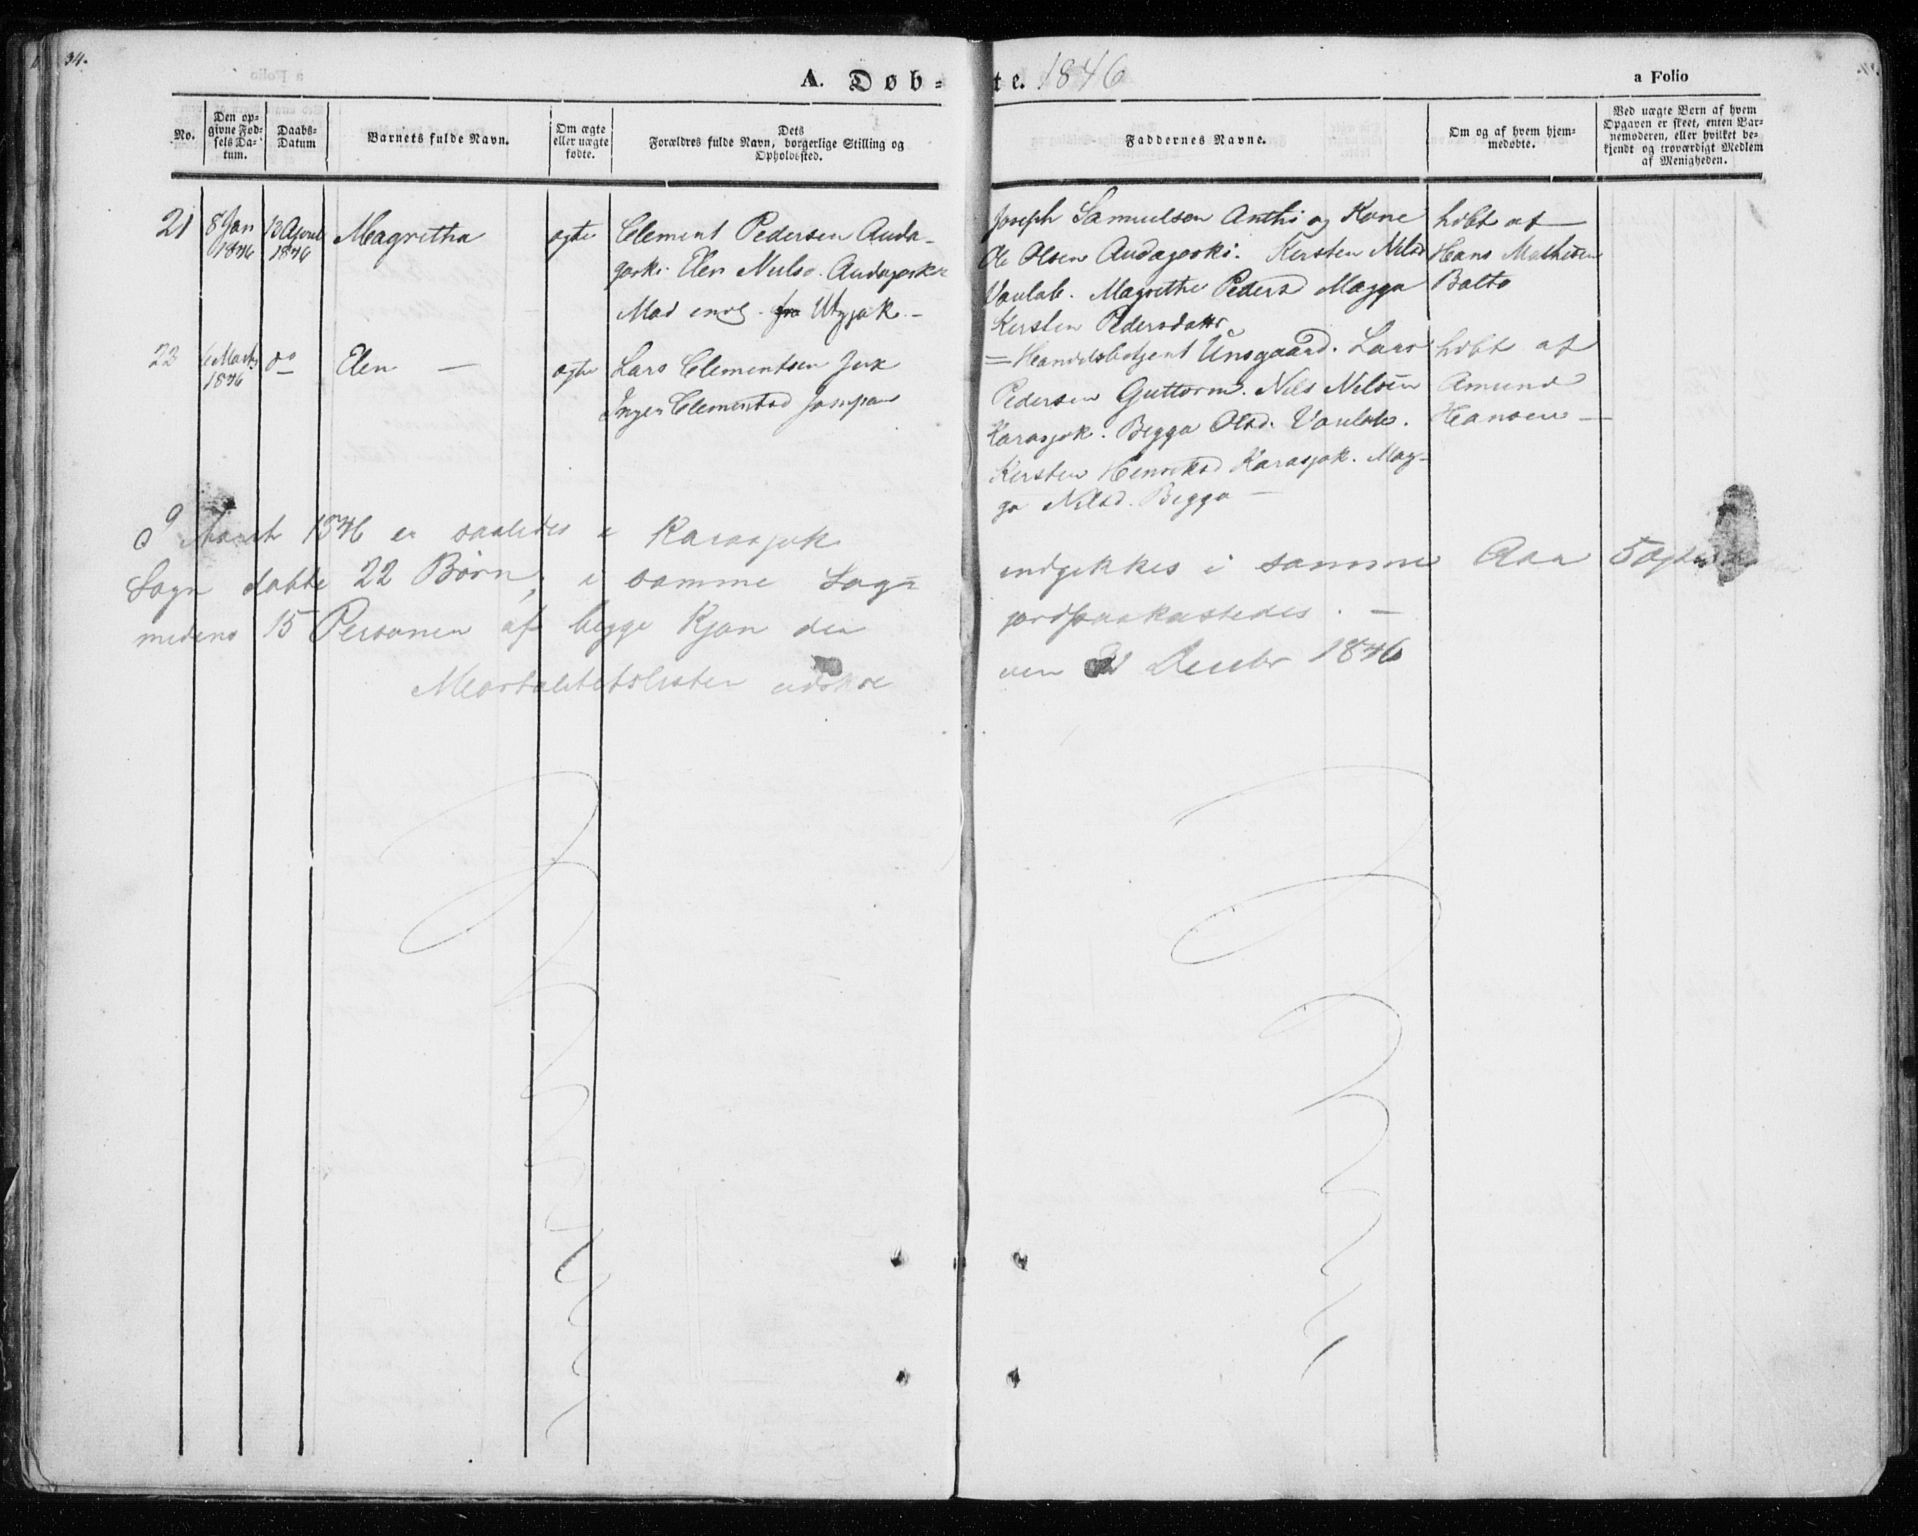 34.
A. Døb-
te. 1846
a Folio
No.
Den op-
givne Fød-
sels Da-
tum.
Daabs-
Datum
Barnets fulde Navn.
Om ægte
eller uægte
fødte.
Dets
Forældres fulde Navn, borgerlige Stilling og
Opholdssted.
Faddernes Navne.
Om og af hvem hjem-
medøbte.
Ved uægte Børn af hvem
Opgaven er skeet, enten Bar-
nemoderen, eller hvilket be-
kjendt og troværdigt Medlem
af Menigheden.
21
8 Jan
1846
12 April
1846
Magretha
ægte
Clement Pedersen Auda-
Elen Audagoski
Mad Utzjok -
Joseph Samuelsen Anthi og Kone
Ole Olsen Audagoski. Kersten Nilsd
Vaulab. Magrethe Pedersd Magga
Kersten Pedersdatter
hdbt af
Hans Mathisen
Balto
22
Marts
1846
do
Elen -
ægte
Lars Clementsen
Inger Clementsd
= Handelsbetjent Unsgaard. Lars
Pedersen Guttorm. Nils Nilsen
Karasjok. Begga Olsd. Vaulab.
Kersten Henriksd Karasjok. Mag-
ga Nilsd. Begga -
hdbt af
Amund
Hansen -
I Aaret 1846 er saaledes i Karasjok
Sogn døbte 22 Børn; i samme Sogn
medens 15 Personer af begge Kjøn der
Mortalitetslisten udskre
indgikkes i samme Aar 5 Ægte
jordpaakastedes. -
ven 31 Decbr 1846